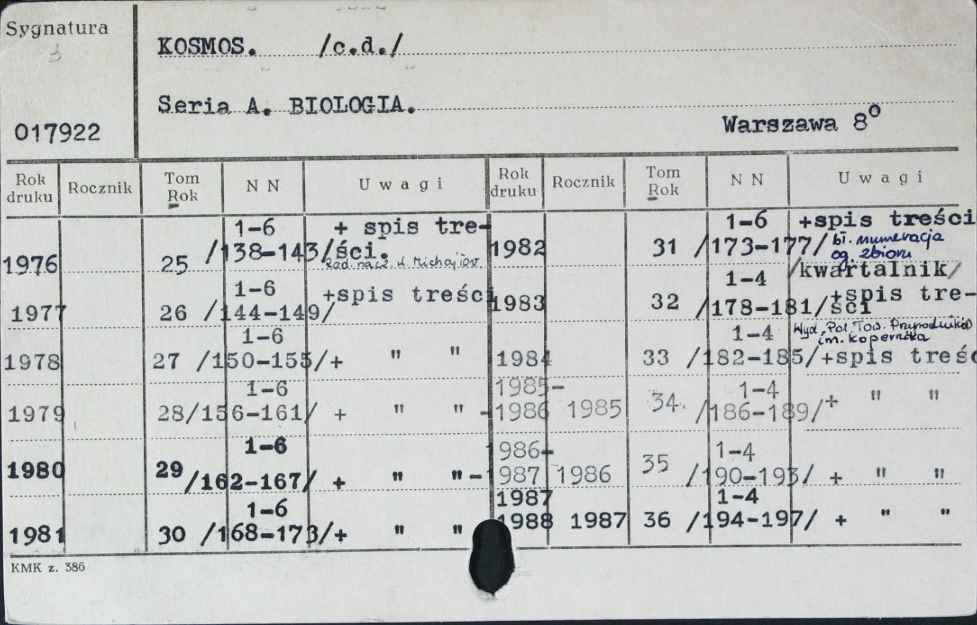 Sygnatura
KOSMOS. /c.d./
Seria A. BIOLOGIA.
017922
Warszawa 8°
Rok druku Rocznik Tom Rok N N Uwagi Rok druku Rocznik Tom Rok N N Uwagi
1976 25 1-6 /138-143/ + spis treści.
1977 26 1-6 /144-149/ +spis treści
1978 27 1-6 /150-155/+ " "
1979 28 1-6 /156-161/ + " " -
1980 29 1-6 /162-167/ + " " -
1981 30 1-6 /168-173/+ " "
1982 31 1-6 /173-177/ +spis treści bł. numeracja og. zbioru
/kwartalnik/
1983 32 1-4 /178-181/ +spis treści
Wyd. Pol. Tow. Przyrodników im. Kopernika
1984 33 1-4 /182-185/ +spis treśc
1985-1986 1985 34. 1-4 /186-189/ + " "
1986-1987 1986 35 1-4 /190-193/ + " "
1987 1988 1987 36 1-4 /194-197/ + " "
KMK z. 386